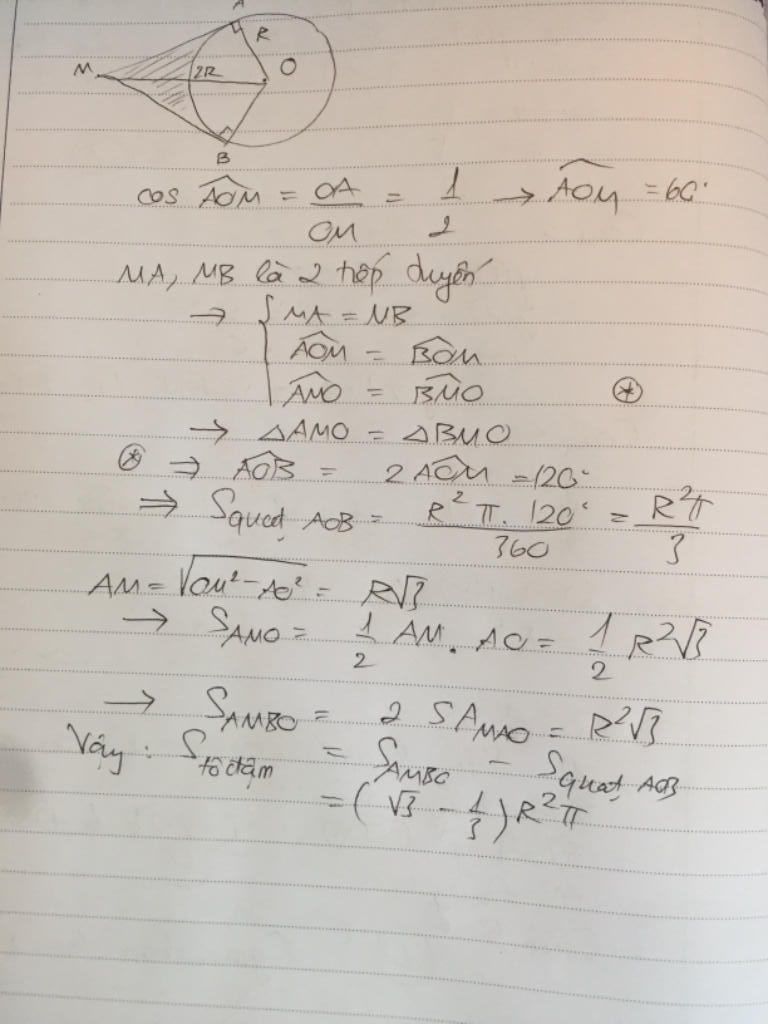 A
R
M
2R
O
B
cos AOM = OA/OM = 1/2 → AOM = 60°
MA, MB là 2 tiếp tuyến
→ { MA = MB
AOM = BOM
AMO = BMO (*)
→ △AMO = △BMO
(*) ⇒ AOB = 2 AOM = 120°
⇒ S quạt AOB = R²π.120°/360 = R²π/3
AM = √(OM² - AO²) = R√3
→ S AMO = 1/2 AM. AO = 1/2 R²√3
→ S AMBO = 2 SA MAO = R²√3
Vậy : S tô đậm = S AMBO - S quạt AOB
= (√3 - 1/3) R²π